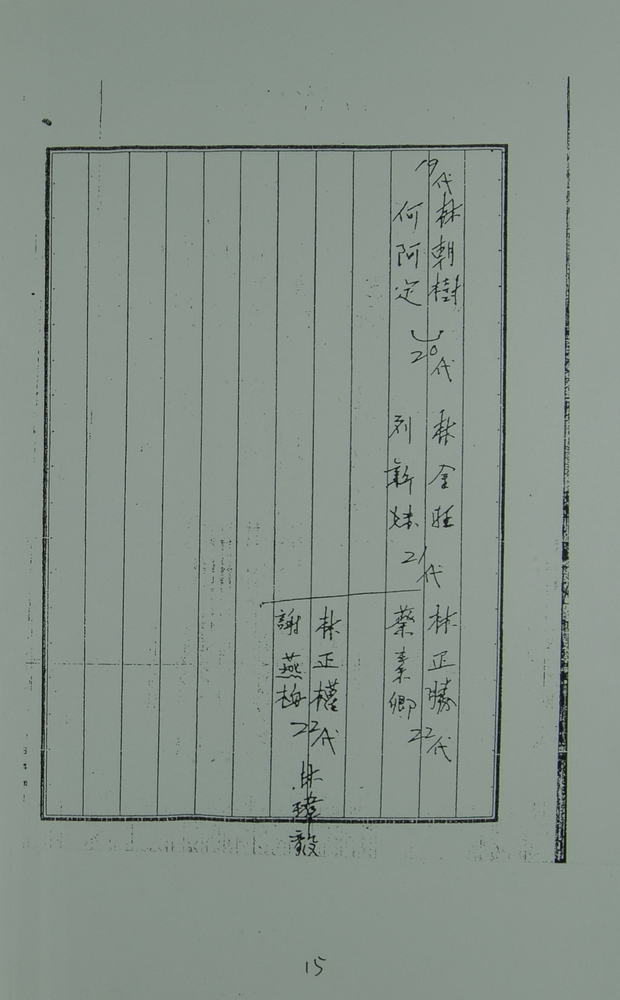 19代
林朝樹
何阿定
20代
林金旺
刘新妹
21代
林正勝
蔡素卿
22代
林正權
謝燕梅
22代
林瑋毅
15